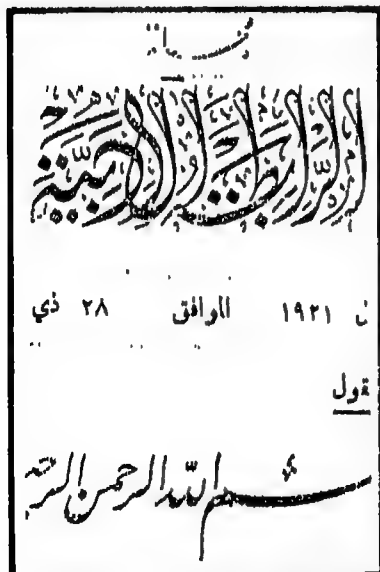 مجلة
الرابطة الأدبية
١٩٢١ الموافق ٢٨ ذي
قول
بسم الله الرحمن الر